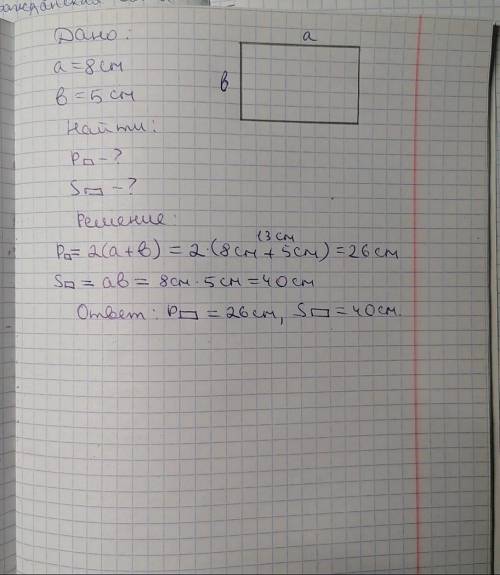 Дано:
a
a = 8 см
в
в = 5 см
Найти:
P▭ - ?
S▭ - ?
Решение:
13 см
P▭ = 2(a + в) = 2·(8см + 5см) = 26 см
S▭ = aв = 8см · 5см = 40 см
Ответ: P▭ = 26 см, S▭ = 40 см.